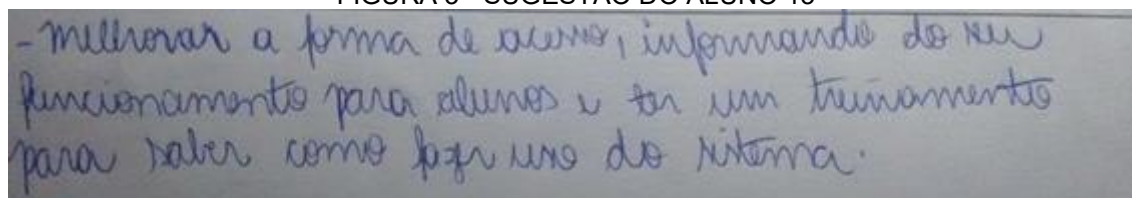 - melhorar a forma de acesso, informando do seu
funcionamento para alunos e ter um treinamento
para saber como fazer uso do sistema.